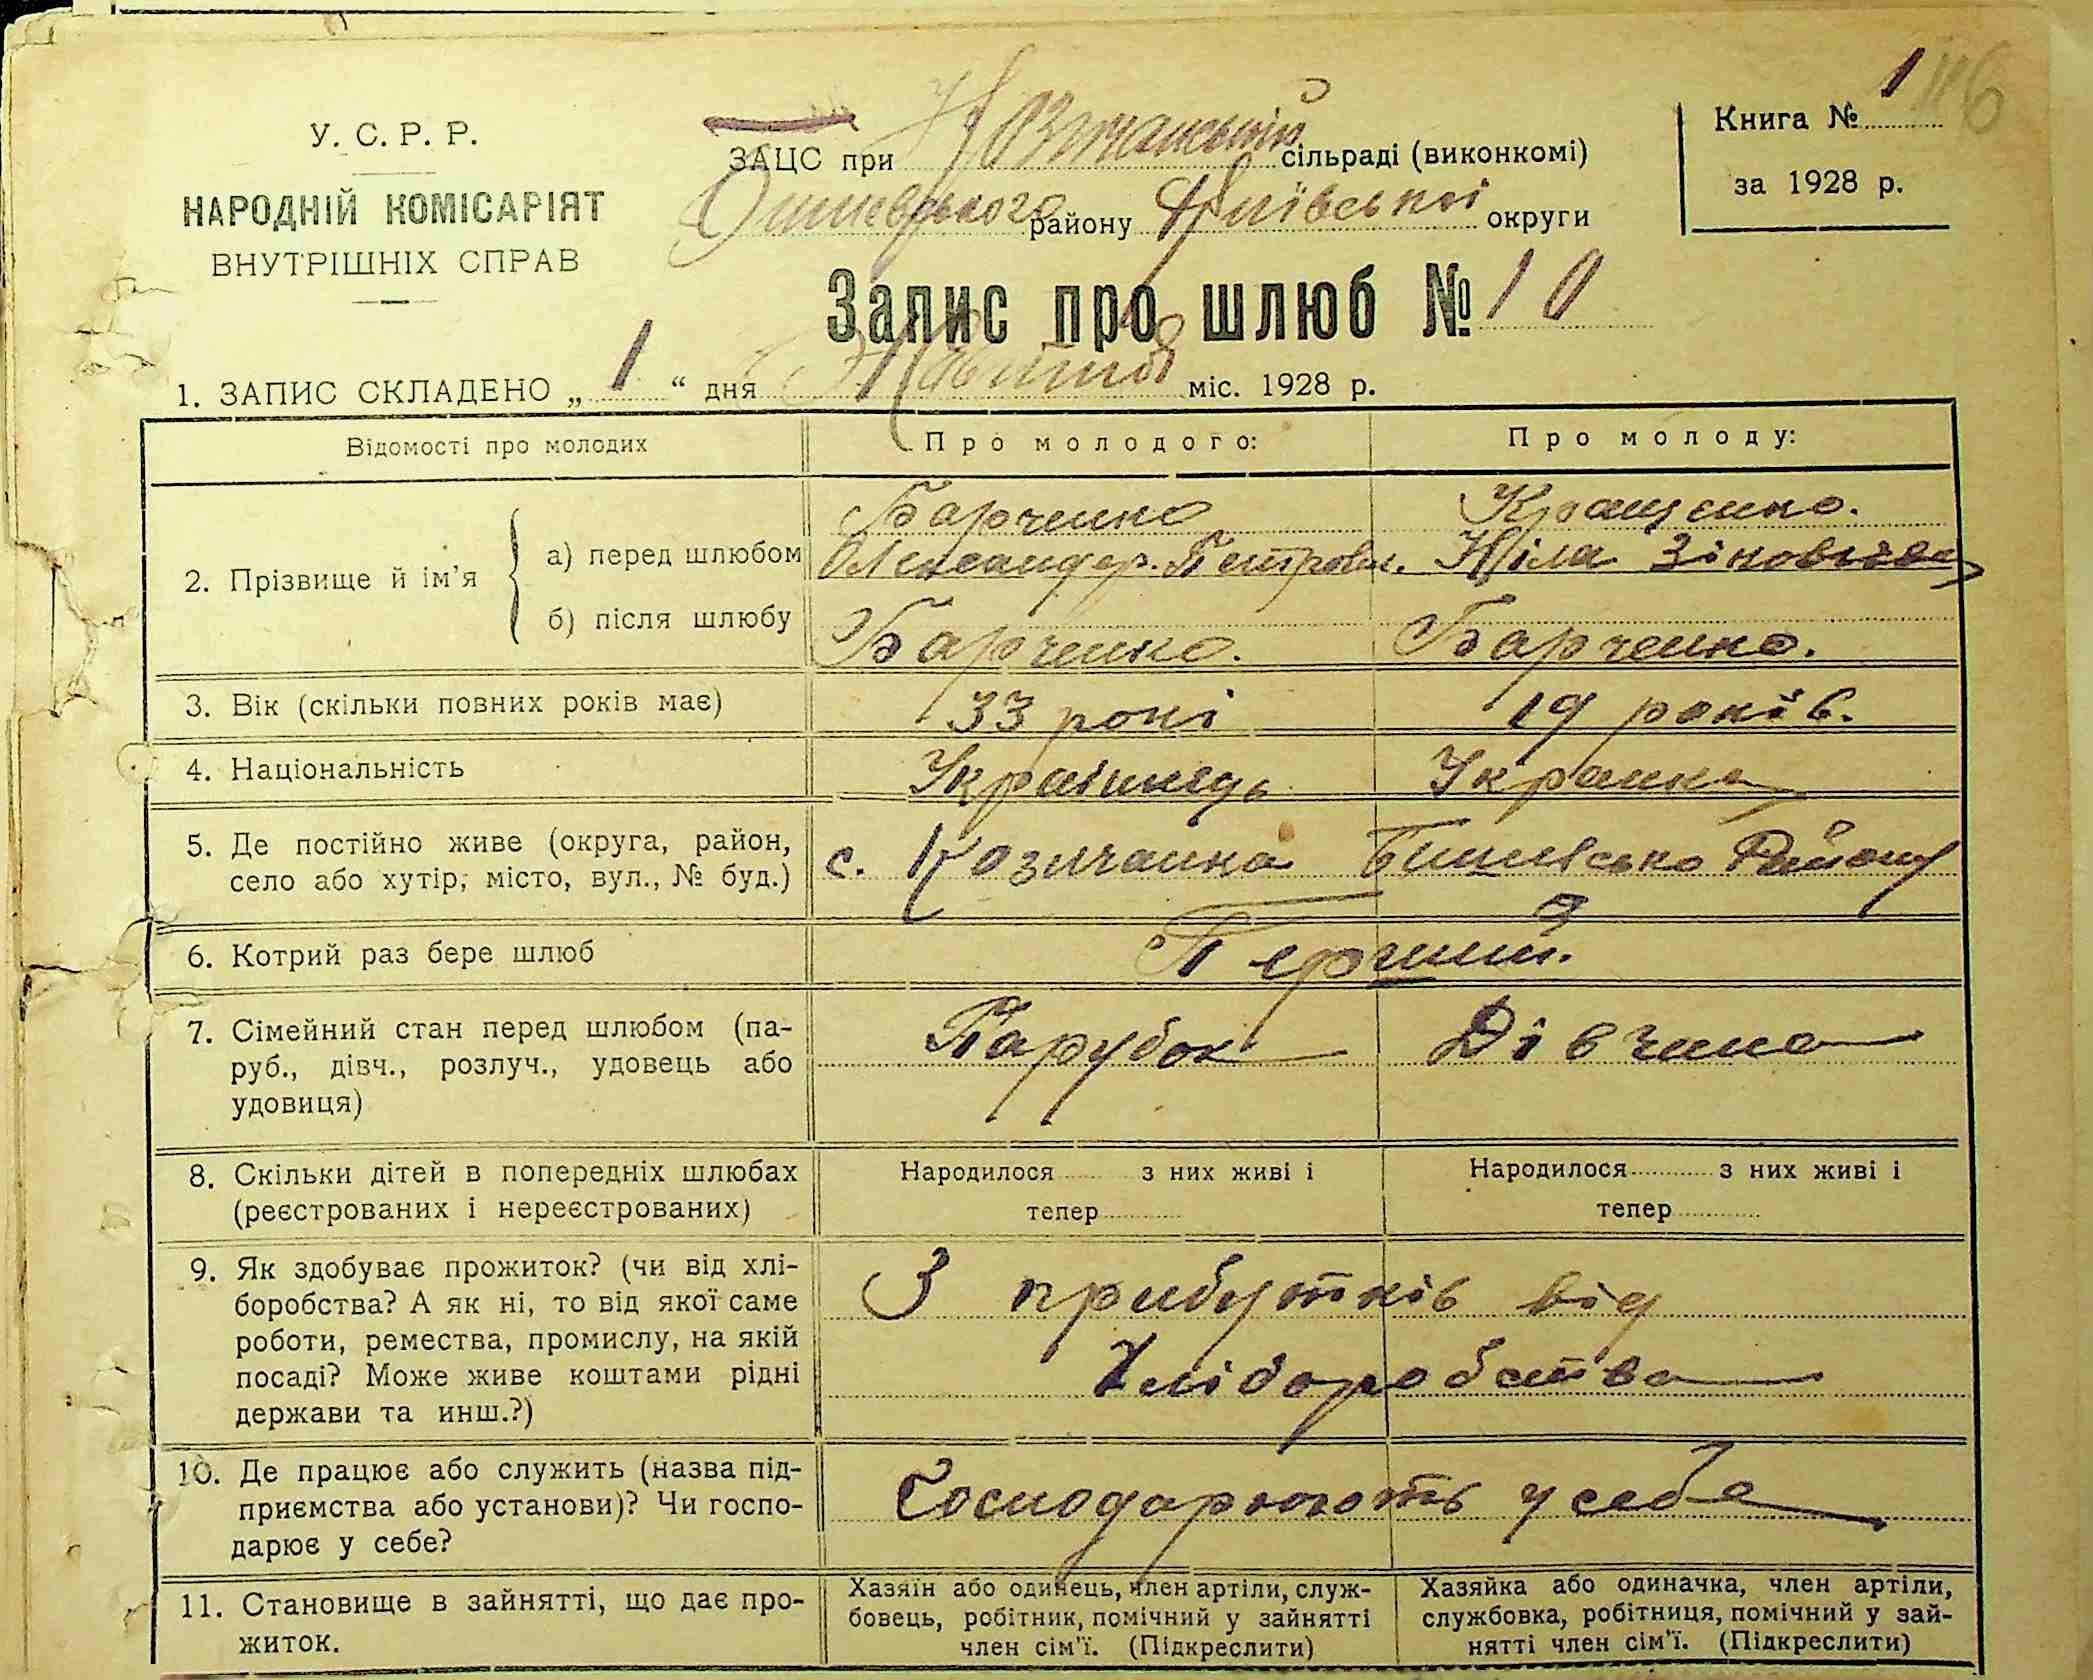 1 116
У. С. Р. Р.
НАРОДНІЙ КОМІСАРІЯТ
ВНУТРІШНІХ СПРАВ
ЗАЦС при Козичанській сільраді (виконкомі)
району Київської округи
Книга № 1
за 1928 р.
Запис про шлюб № 10
1. ЗАПИС СКЛАДЕНО „ 1 “ дня Квітня міс. 1928 р.
Відомості про молодих
Про молодого:
Про молоду:
2. Прізвище й ім’я
а) перед шлюбом
Барченко
Олександер. Петров.
Кращенко.
Ніла Зіновіева
б) після шлюбу
Барченко.
Барченко.
3. Вік (скільки повних років має)
33 рокі
19 років.
4. Національність
Украінець
Украінка
5. Де постійно живе (округа, район,
село або хутір, місто, вул., № буд.)
с. Козичанка Бишівсько Району
6. Котрий раз бере шлюб
Перший.
7. Сімейний стан перед шлюбом (па-
руб., дівч., розлуч., удовець або
удовиця)
Парубок
Дівчина
8. Скільки дітей в попередніх шлюбах
(реєстрованих і нереєстрованих)
Народилося з них живі і
тепер
Народилося з них живі і
тепер
9. Як здобуває прожиток? (чи від хлі-
боробства? А як ні, то від якої саме
роботи, ремества, промислу, на якій
посаді? Може живе коштами рідні
держави та инш.?)
З прибутків від
Хліборобства
10. Де працює або служить (назва під-
приємства або установи)? Чи госпо-
дарює у себе?
Господарюють у себе
11. Становище в зайнятті, що дає про-
житок.
Хазяїн або одинець, член артіли, служ-
бовець, робітник, помічний у зайнятті
член сім’ї. (Підкреслити)
Хазяйка або одиначка, член артіли,
службовка, робітниця, помічний у зай-
нятті член сім’ї. (Підкреслити)